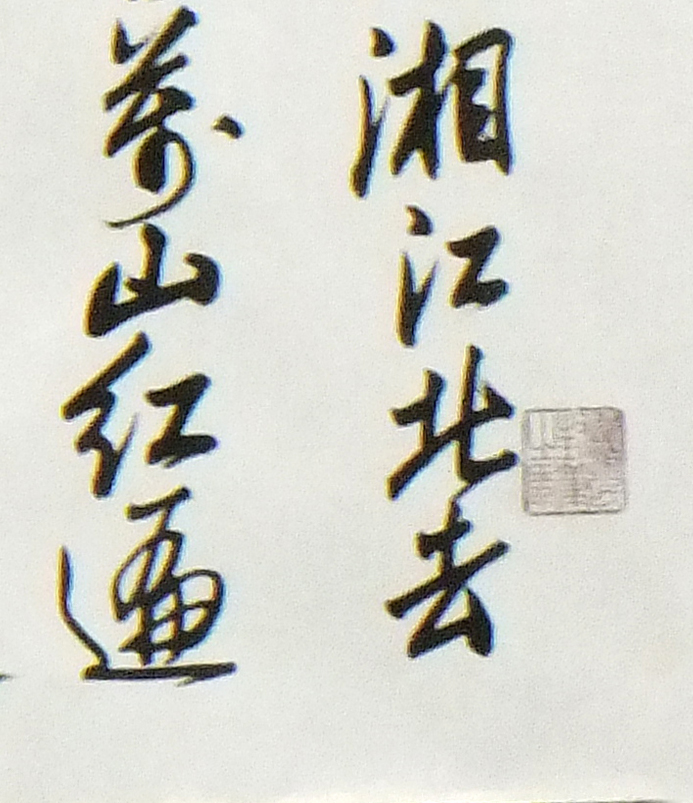 湘江北去
萬山红遍